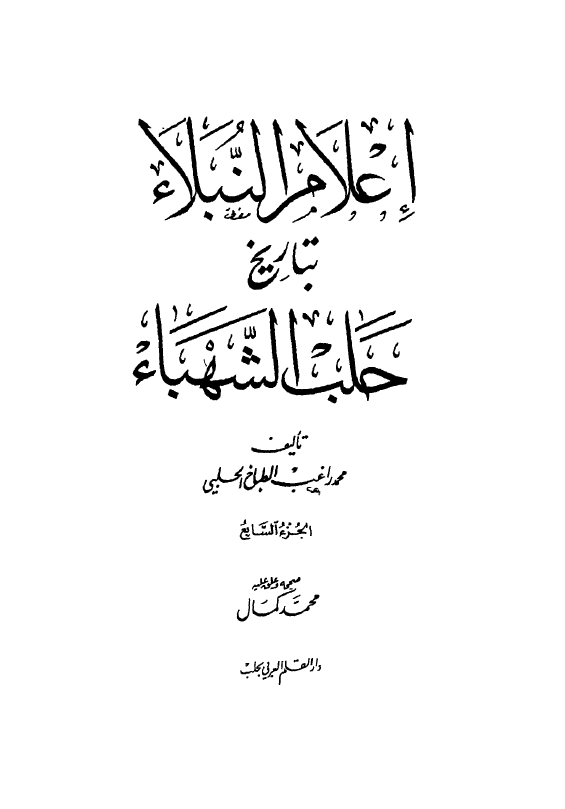 إِعْلَامُ النُّبَلَاءِ
بتاريخ
حَلَبَ الشَّهْبَاءِ
تأليف
محمد راغب الطباخ الحلبي
الجزء السَّابِعُ
صححه وعلق عليه
محمَّد كمَال
دار القلم العربي بحلب